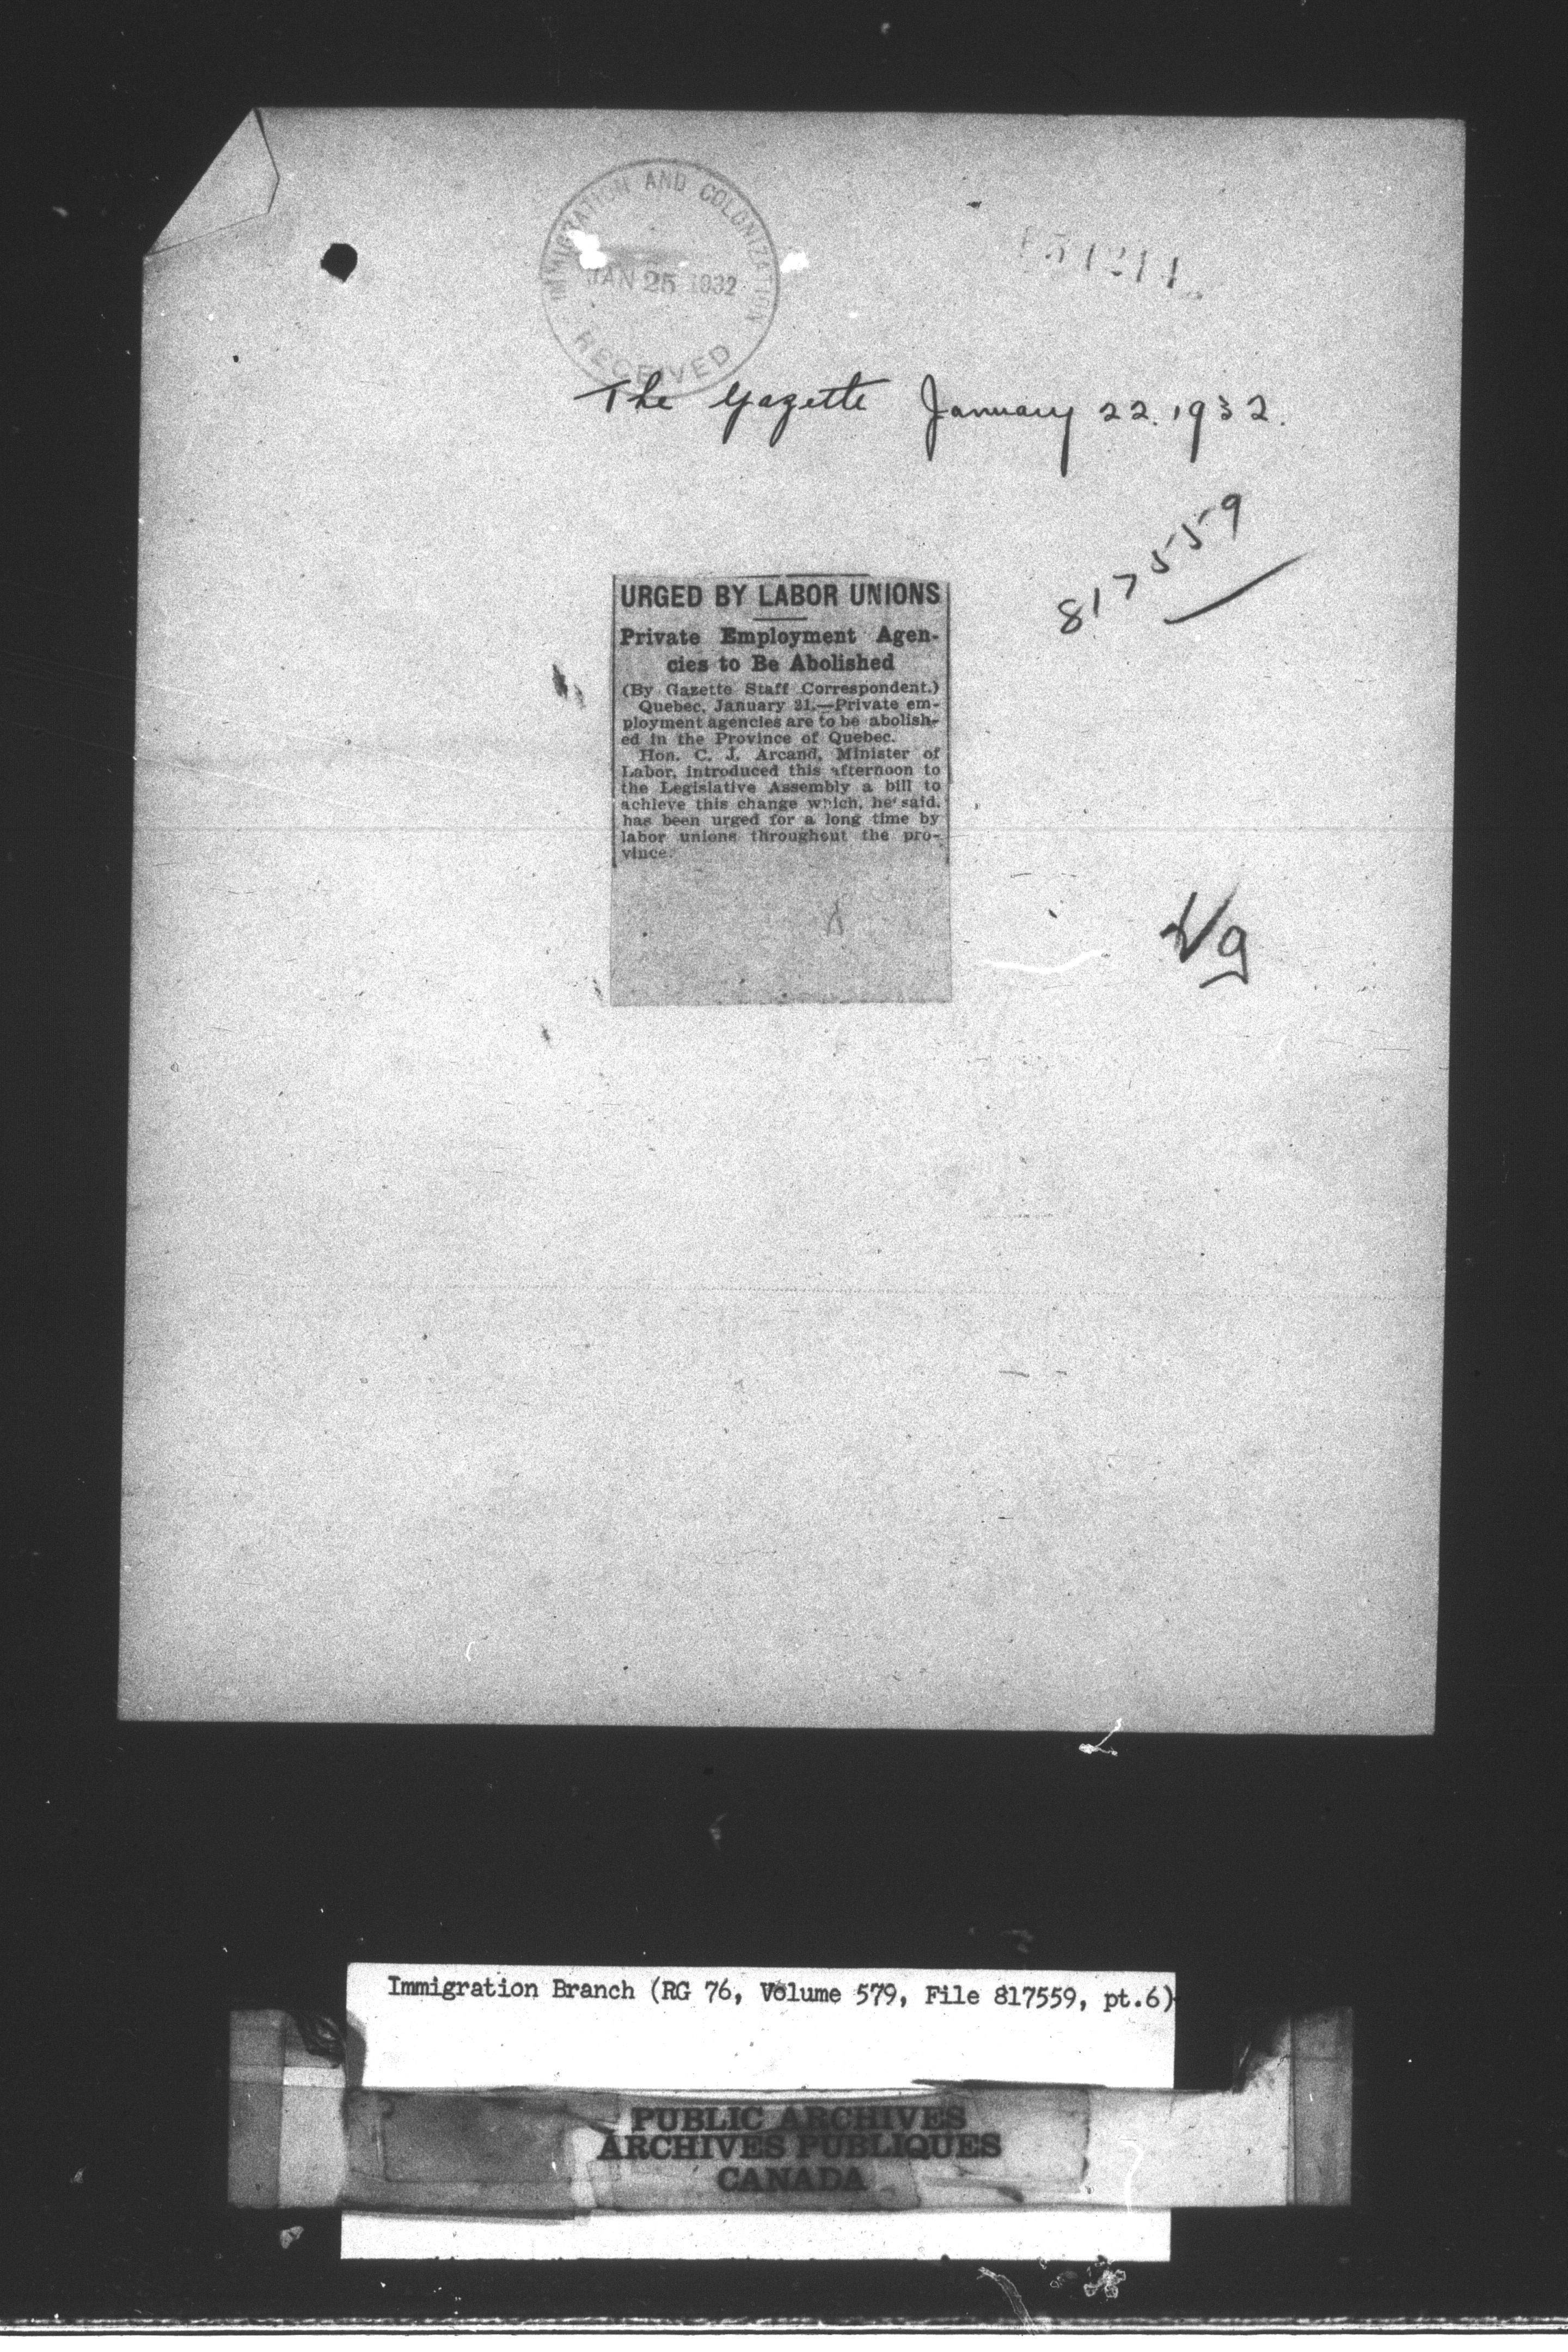 IMMIGRATION AND COLONIZATION
JAN 25 1932
RECEIVED
The Gazette January 22. 1932.
817559
URGED BY LABOR UNIONS
Private Employment Agen-
cies to Be Abolished
(By Gazette Staff Correspondent.)
Quebec, January 21.—Private em-
ployment agencies are to be abolish-
ed in the Province of Quebec.
Hon. C. J. Arcand, Minister of
Labor, introduced this afternoon to
the Legislative Assembly a bill to
achieve this change which, he said,
has been urged for a long time by
labor unions throughout the pro-
vince.
Immigration Branch (RG 76, Volume 579, File 817559, pt.6)
PUBLIC ARCHIVES
ARCHIVES PUBLIQUES
CANADA